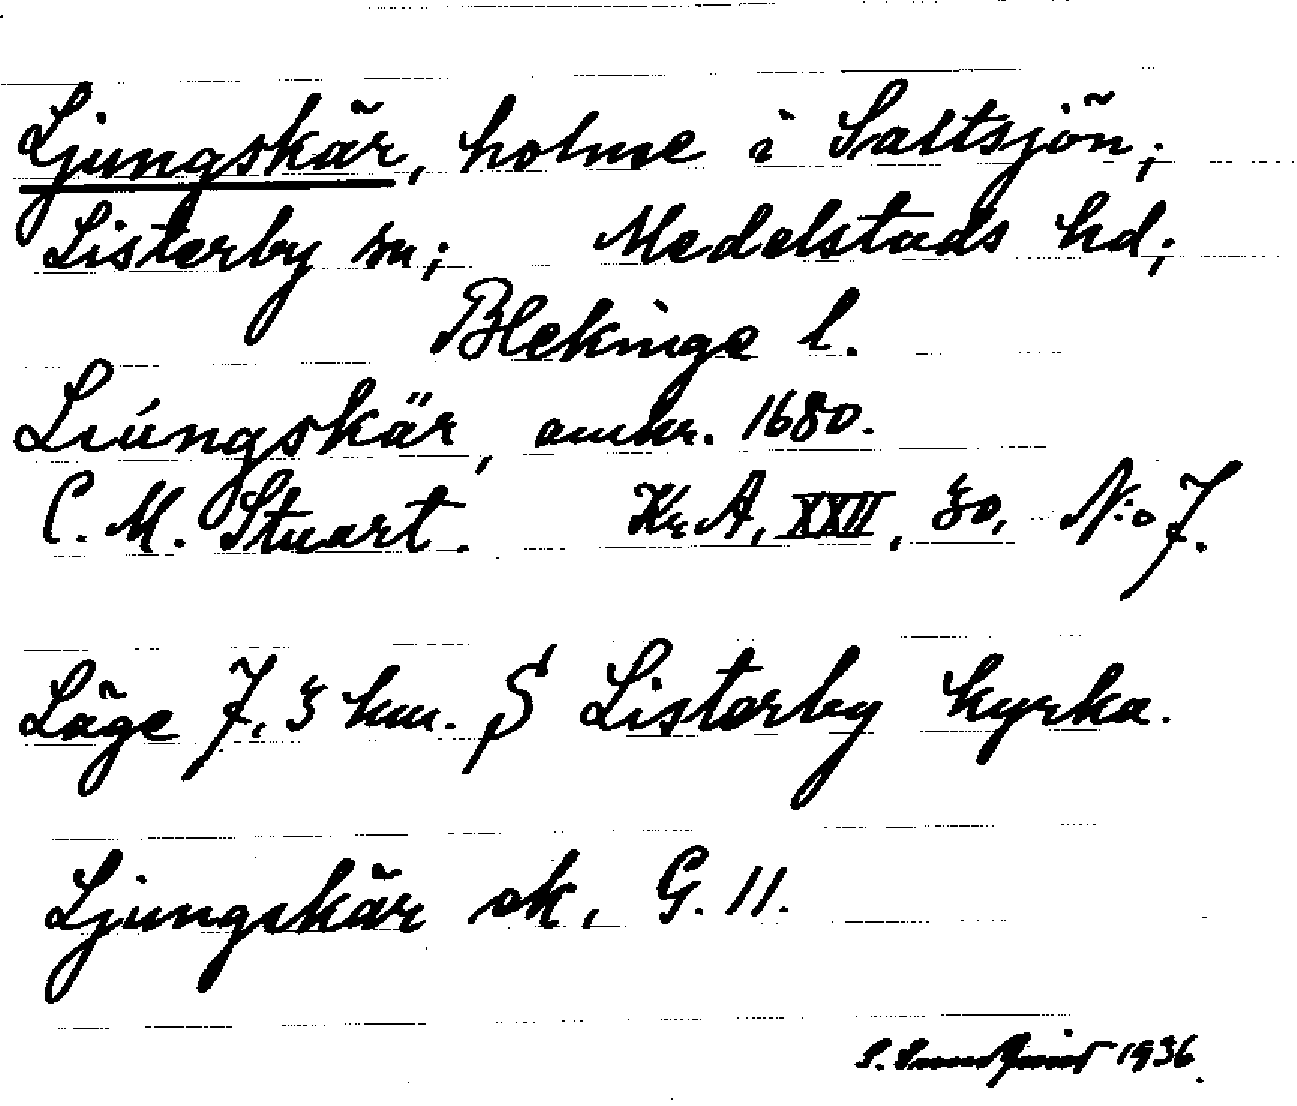 Ljungskär, holme i Saltsjön;
Listerby sn; Medelstads hd;
Blekinge l.
Liúngskär, omkr. 1680.
C. M. Stuart. Kr.A, XXII, 30, N:o 7.
Läge 7,3 km. S Listerby kyrka.
Ljungskär ek, G. 11.
S. 1936